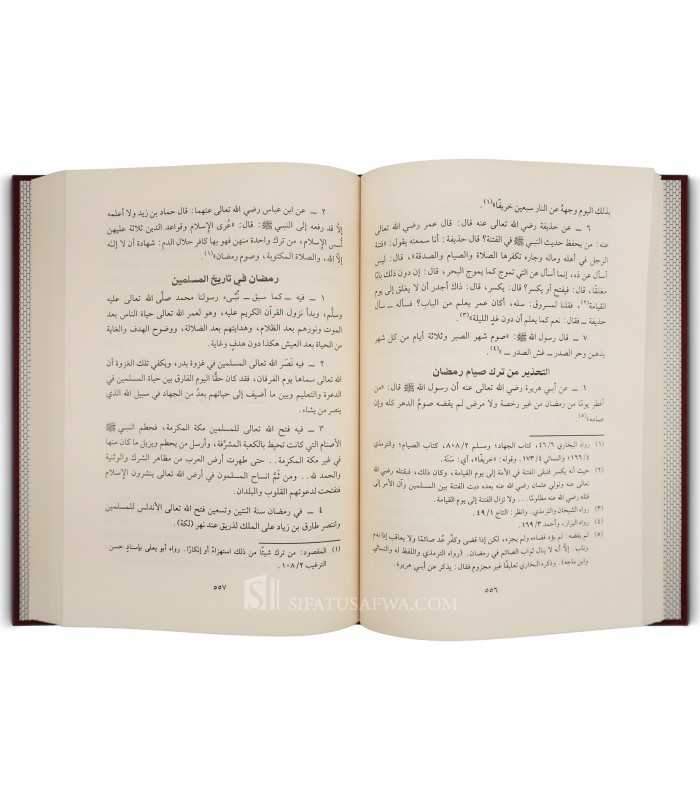 بذلك اليوم وجهه عن النار سبعين خريفًا»(١).
٦ ــ عن حذيفة رضي الله تعالى عنه قال: قال عمر رضي الله تعالى
عنه: من يحفظ حديث النبي ﷺ في الفتنة؟ قال حذيفة: أنا سمعته يقول: «فتنة
الرجل في أهله وماله وجاره تكفرها الصلاة والصيام والصدقة»، قال: ليس
أسأل عن ذه، إنما أسأل عن التي تموج كما يموج البحر، قال: إن دون ذلك بابًا
مغلقًا، قال: فيفتح أو يكسر؟ قال: يكسر، قال: ذاك أجدر أن لا يغلق إلى يوم
القيامة(٢). فقلنا لمسروق: سله، أكان عمر يعلم من الباب؟ فسأله ــ سأل
حذيفة ــ فقال: نعم كما يعلم أن دون غدٍ الليلة»(٣).
٧ ــ قال رسول الله ﷺ: «صوم شهر الصبر وثلاثة أيام من كل شهر
يذهبن وحر الصدر ــ غش الصدر ــ»(٤).
التحذير من ترك صيام رمضان
١ ــ عن أبي هريرة رضي الله تعالى عنه أن رسول الله ﷺ قال: «من
أفطر يومًا من رمضان من غير رخصة ولا مرض لم يقضه صومُ الدهر كله وإن
صامه»(٥)
(١) رواه البخاري ٤٦/٦، كتاب الجهاد؛ ومسلم ٨٠٨/٢، كتاب الصيام؛ والترمذي
١٦٦/٤؛ والنسائي ١٧٣/٤. وقوله: «خريفًا»، أي: سنة.
(٢) حيث أنه يكسر فتبقى الفتنة في الأمة إلى يوم القيامة، وكذلك كان، فبقتله رضي الله
عنه وتولي عثمان رضي الله عنه بعده دبت الفتنة بين المسلمين وآل الأمر إلى
قتله رضي الله عنه مظلومًا... ولا تزال الفتنة إلى يوم القيامة.
(٣) رواه الشيخان والترمذي. وانظر: التاج ٤٩/١.
(٤) رواه البزار، وأحمد ٦٦٩/٣.
(٥) لم يقضه: لم يؤد قضاءه ولم يجزه، لكن إذا قضى وكفّر عُد صائمًا ولا يعاقب إذا
إلَّا أنه لا ينال ثواب الصائم في رمضان. (رواه الترمذي واللفظ له والنسائي
وابن ماجه). وذكره البخاري تعليقًا غير مجزوم فقال: يذكر عن أبي هريرة.
٥٥٦
٢ ــ عن ابن عباس رضي الله تعالى عنهما: قال حماد بن زيد ولا أعلمه
إلَّا قد رفعه إلى النبي ﷺ قال: «عُرى الإسلام وقواعد الدين ثلاثة عليهن
أُسس الإسلام، من ترك واحدة منهن فهو بها كافر حلال الدم: شهادة أن لا إله
إلَّا الله، والصلاة المكتوبة، وصوم رمضان»(١)
رمضان في تاريخ المسلمين
١ ــ فيه ــ كما سبق ــ نُبِّىء رسولنا محمد صلَّى الله تعالى عليه
وسلَّم، وبدأ نزول القرآن الكريم عليه، وهو لعمر الله تعالى حياة الناس بعد
الموت ونورهم بعد الظلام، وهدايتهم بعد الضلالة، ووضوح الهدف والغاية
من الحياة بعد العيش هكذا دون هدفٍ وغاية.
٢ ــ فيه نَصَرَ الله تعالى المسلمين في غزوة بدر، ويكفي تلك الغزوة أن
الله تعالى سماها يوم الفرقان، فقد كان حقًا اليوم الفارق بين حياة المسلمين في
الدعوة والتعليم وبين ما أضيف إلى حياتهم بعدُ من الجهاد في سبيل الله الذي
ينصر من يشاء.
٣ ــ فيه فتح الله تعالى للمسلمين مكة المكرمة، فحطم النبي ﷺ
الأصنام التي كانت تحيط بالكعبة المشرَّفة، وأرسل من يحطم ويزيل ما كان منها
في غير مكة المكرمة... حتى طهرت أرض العرب من مظاهر الشرك والوثنية
والحمد لله... ومن ثُمَّ انساح المسلمون في أرض الله تعالى ينشرون الإسلام
ففتحت لدعوتهم القلوب والبلدان.
٤ ــ في رمضان سنة اثنتين وتسعين فتح الله تعالى الأندلس للمسلمين
وانتصر طارق بن زياد على الملك لذريق عند نهر (لكة).
(١) المقصود: من ترك شيئًا من ذلك استهزاءً أو إنكارًا. رواه أبو يعلى بإسنادٍ حسن.
الترغيب ١٠٨/٢.
٥٥٧
SIFATUSAFWA.COM